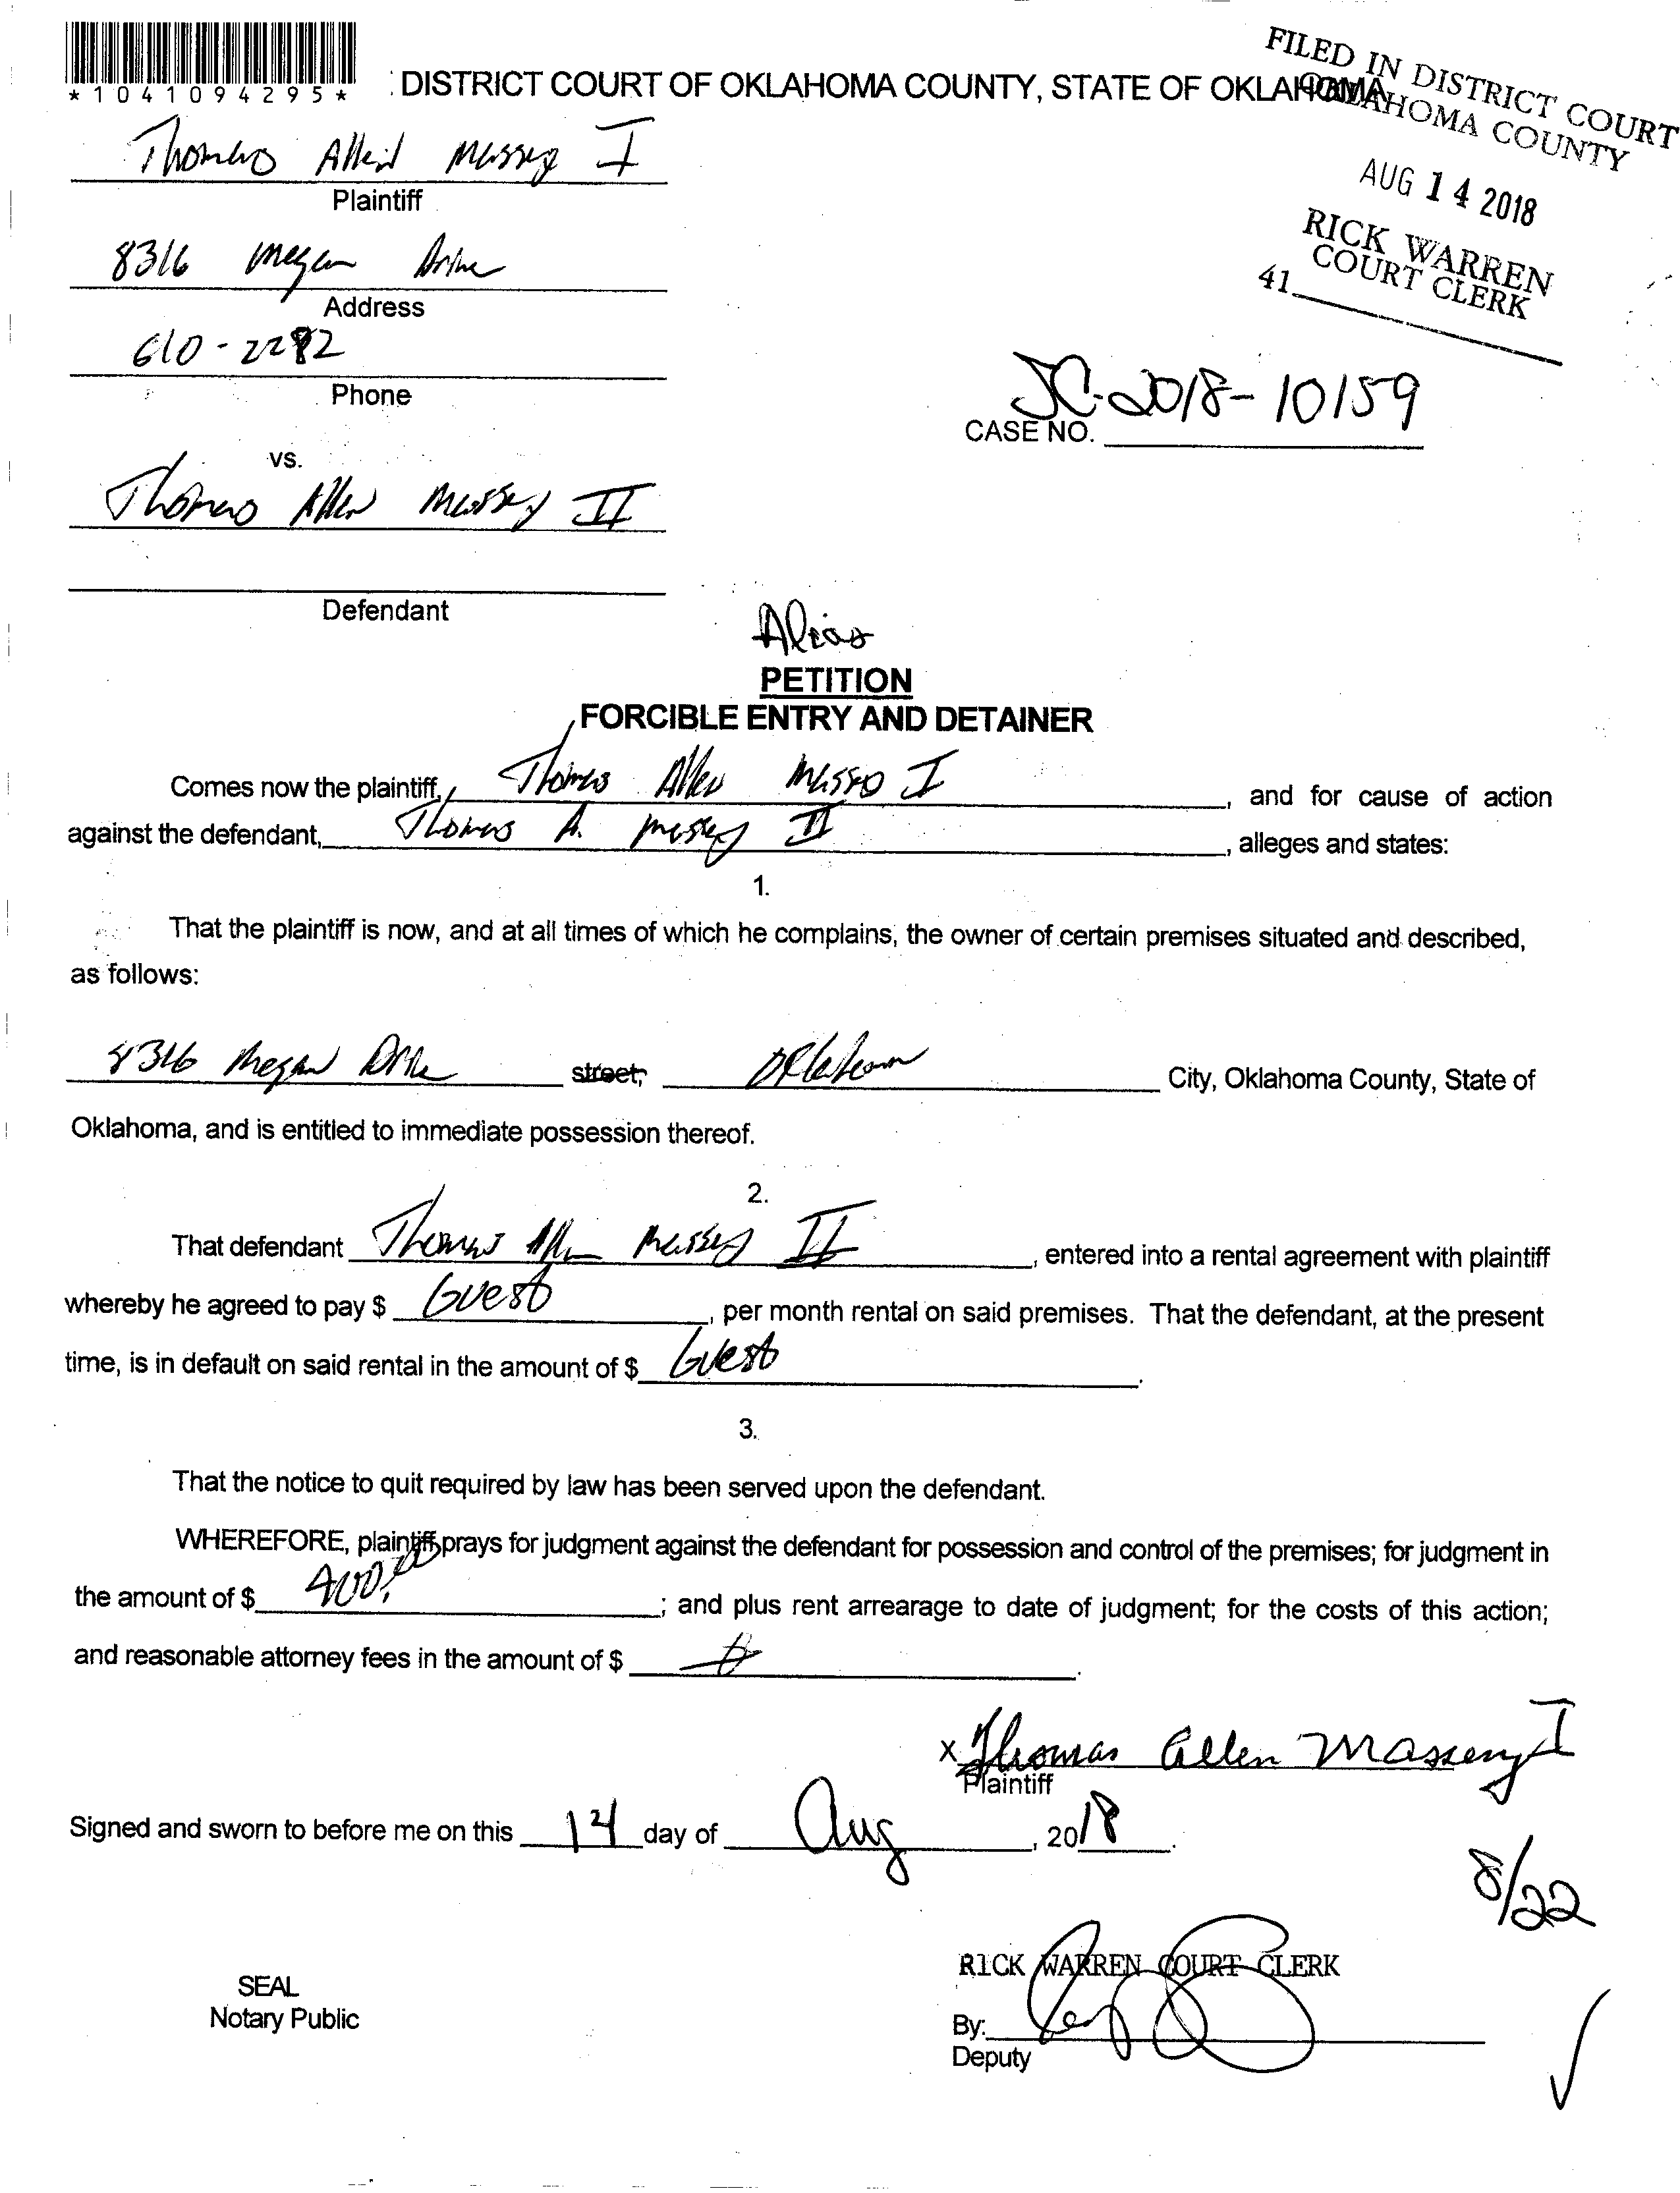 *1041094295*
DISTRICT COURT OF OKLAHOMA COUNTY, STATE OF OKLAHOMA
FILED IN DISTRICT COURT
OKLAHOMA COUNTY
AUG 14 2018
RICK WARREN
COURT CLERK
41
Thomas Allen Massey I
Plaintiff
8316 Megan Drive
Address
610-2292
Phone
JC-2018-10159
CASE NO.
vs.
Thomas Allen Massey II
Defendant
Alias
PETITION
FORCIBLE ENTRY AND DETAINER
Comes now the plaintiff, Thomas Allen Massey I, and for cause of action
against the defendant, Thomas A. Massey II, alleges and states:
1.
That the plaintiff is now, and at all times of which he complains, the owner of certain premises situated and described,
as follows:
8316 Megan Drive street, Oklahoma City, Oklahoma County, State of
Oklahoma, and is entitled to immediate possession thereof.
2.
That defendant Thomas Allen Massey II, entered into a rental agreement with plaintiff
whereby he agreed to pay $ Guest, per month rental on said premises. That the defendant, at the present
time, is in default on said rental in the amount of $ Guest.
3.
That the notice to quit required by law has been served upon the defendant.
WHEREFORE, plaintiff prays for judgment against the defendant for possession and control of the premises; for judgment in
the amount of $ 400.00; and plus rent arrearage to date of judgment; for the costs of this action;
and reasonable attorney fees in the amount of $
x Thomas Allen Massey I
Plaintiff
Signed and sworn to before me on this 14 day of Aug, 2018.
8/22
RICK WARREN COURT CLERK
SEAL
Notary Public
By:
Deputy